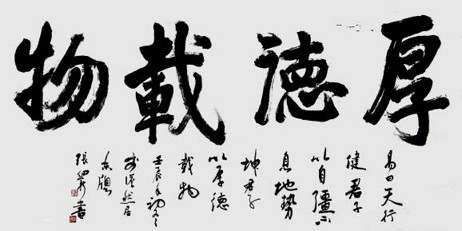 厚德載物
易曰天行
健君子
以自彊不
息地勢
坤君子
以厚德
載物
壬辰年初
居
張 書